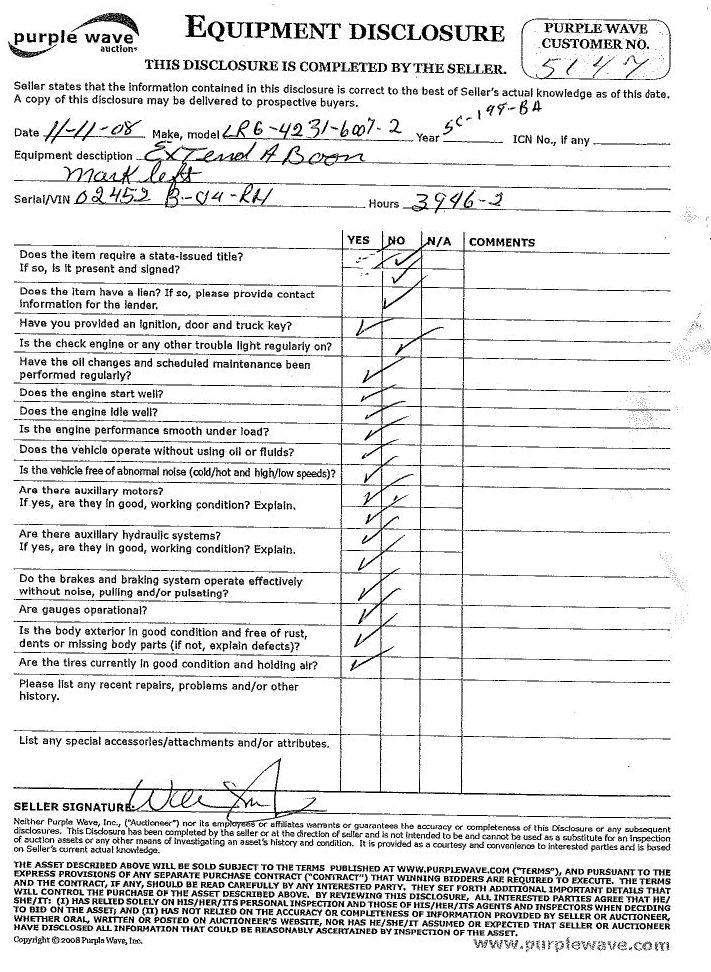 purple wave
auction®
EQUIPMENT DISCLOSURE
PURPLE WAVE
CUSTOMER NO.
5147
THIS DISCLOSURE IS COMPLETED BY THE SELLER.
Seller states that the information contained in this disclosure is correct to the best of Seller's actual knowledge as of this date.
A copy of this disclosure may be delivered to prospective buyers.
Date 11-11-08 Make, model LRG-4231-6007-2 Year SC-199-BA ICN No., if any
Equipment desctiption EXTend A Boon
mark left
Serial/VIN 02452 B-04-RH Hours 3946-2
YES NO N/A COMMENTS
Does the item require a state-issued title?
If so, is it present and signed?
Does the item have a lien? If so, please provide contact
information for the lender.
Have you provided an ignition, door and truck key?
Is the check engine or any other trouble light regularly on?
Have the oil changes and scheduled maintenance been
performed regularly?
Does the engine start well?
Does the engine idle well?
Is the engine performance smooth under load?
Does the vehicle operate without using oil or fluids?
Is the vehicle free of abnormal noise (cold/hot and high/low speeds)?
Are there auxiliary motors?
If yes, are they in good, working condition? Explain.
Are there auxiliary hydraulic systems?
If yes, are they in good, working condition? Explain.
Do the brakes and braking system operate effectively
without noise, pulling and/or pulsating?
Are gauges operational?
Is the body exterior in good condition and free of rust,
dents or missing body parts (if not, explain defects)?
Are the tires currently in good condition and holding air?
Please list any recent repairs, problems and/or other
history.
List any special accessories/attachments and/or attributes.
SELLER SIGNATURE:
Neither Purple Wave, Inc., ("Auctioneer") nor its employees or affiliates warrants or guarantees the accuracy or completeness of this Disclosure or any subsequent
disclosures. This Disclosure has been completed by the seller or at the direction of seller and is not intended to be and cannot be used as a substitute for an inspection
of auction assets or any other means of investigating an asset's history and condition. It is provided as a courtesy and convenience to interested parties and is based
on Seller's current actual knowledge.
THE ASSET DESCRIBED ABOVE WILL BE SOLD SUBJECT TO THE TERMS PUBLISHED AT WWW.PURPLEWAVE.COM ("TERMS"), AND PURSUANT TO THE
EXPRESS PROVISIONS OF ANY SEPARATE PURCHASE CONTRACT ("CONTRACT") THAT WINNING BIDDERS ARE REQUIRED TO EXECUTE. THE TERMS
AND THE CONTRACT, IF ANY, SHOULD BE READ CAREFULLY BY ANY INTERESTED PARTY. THEY SET FORTH ADDITIONAL IMPORTANT DETAILS THAT
WILL CONTROL THE PURCHASE OF THE ASSET DESCRIBED ABOVE. BY REVIEWING THIS DISCLOSURE, ALL INTERESTED PARTIES AGREE THAT HE/
SHE/IT: (I) HAS RELIED SOLELY ON HIS/HER/ITS PERSONAL INSPECTION AND THOSE OF HIS/HER/ITS AGENTS AND INSPECTORS WHEN DECIDING
TO BID ON THE ASSET; AND (II) HAS NOT RELIED ON THE ACCURACY OR COMPLETENESS OF INFORMATION PROVIDED BY SELLER OR AUCTIONEER,
WHETHER ORAL, WRITTEN OR POSTED ON AUCTIONEER'S WEBSITE, NOR HAS HE/SHE/IT ASSUMED OR EXPECTED THAT SELLER OR AUCTIONEER
HAVE DISCLOSED ALL INFORMATION THAT COULD BE REASONABLY ASCERTAINED BY INSPECTION OF THE ASSET.
Copyright © 2008 Purple Wave, Inc.
www.purplewave.com